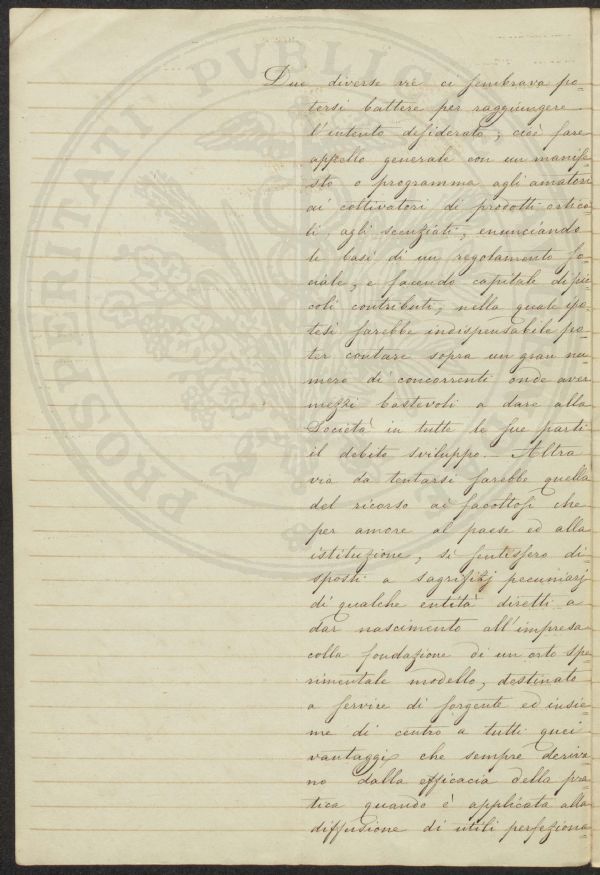 Due diverse vie ci sembrava po=
tersi battere per raggiungere
l'intento desiderato; cioè fare
appello generale con un manife=
sto o programma agli amatori
ai coltivatori di prodotti ortico=
li, agli scenziati, enunciando
le basi di un regolamento so=
ciale, e facendo capitale di pic
coli contributi, nella quale ipo=
tesi sarebbe indispensabile po=
ter contare sopra un gran nu=
mero di concorrenti onde aver
mezzi bastevoli a dare alla
Società in tutte le sue parti
il debito sviluppo. — Altra
via da tentarsi sarebbe quella
del ricorso ai facoltosi che
per amore al paese ed alla
istituzione, si sentissero di=
sposti a sagrifizj pecuniarj
di qualche entità diretti a
dar nascimento all'impresa
colla fondazione di un orto spe=
rimentale modello, destinato
a servire di sorgente ed insie=
me di centro a tutti quei
vantaggi che sempre deriva=
no dalla efficacia della pra=
tica quando è applicata alla
diffusione di utili perfeziona=
PROSPERITATI PVBLICAE